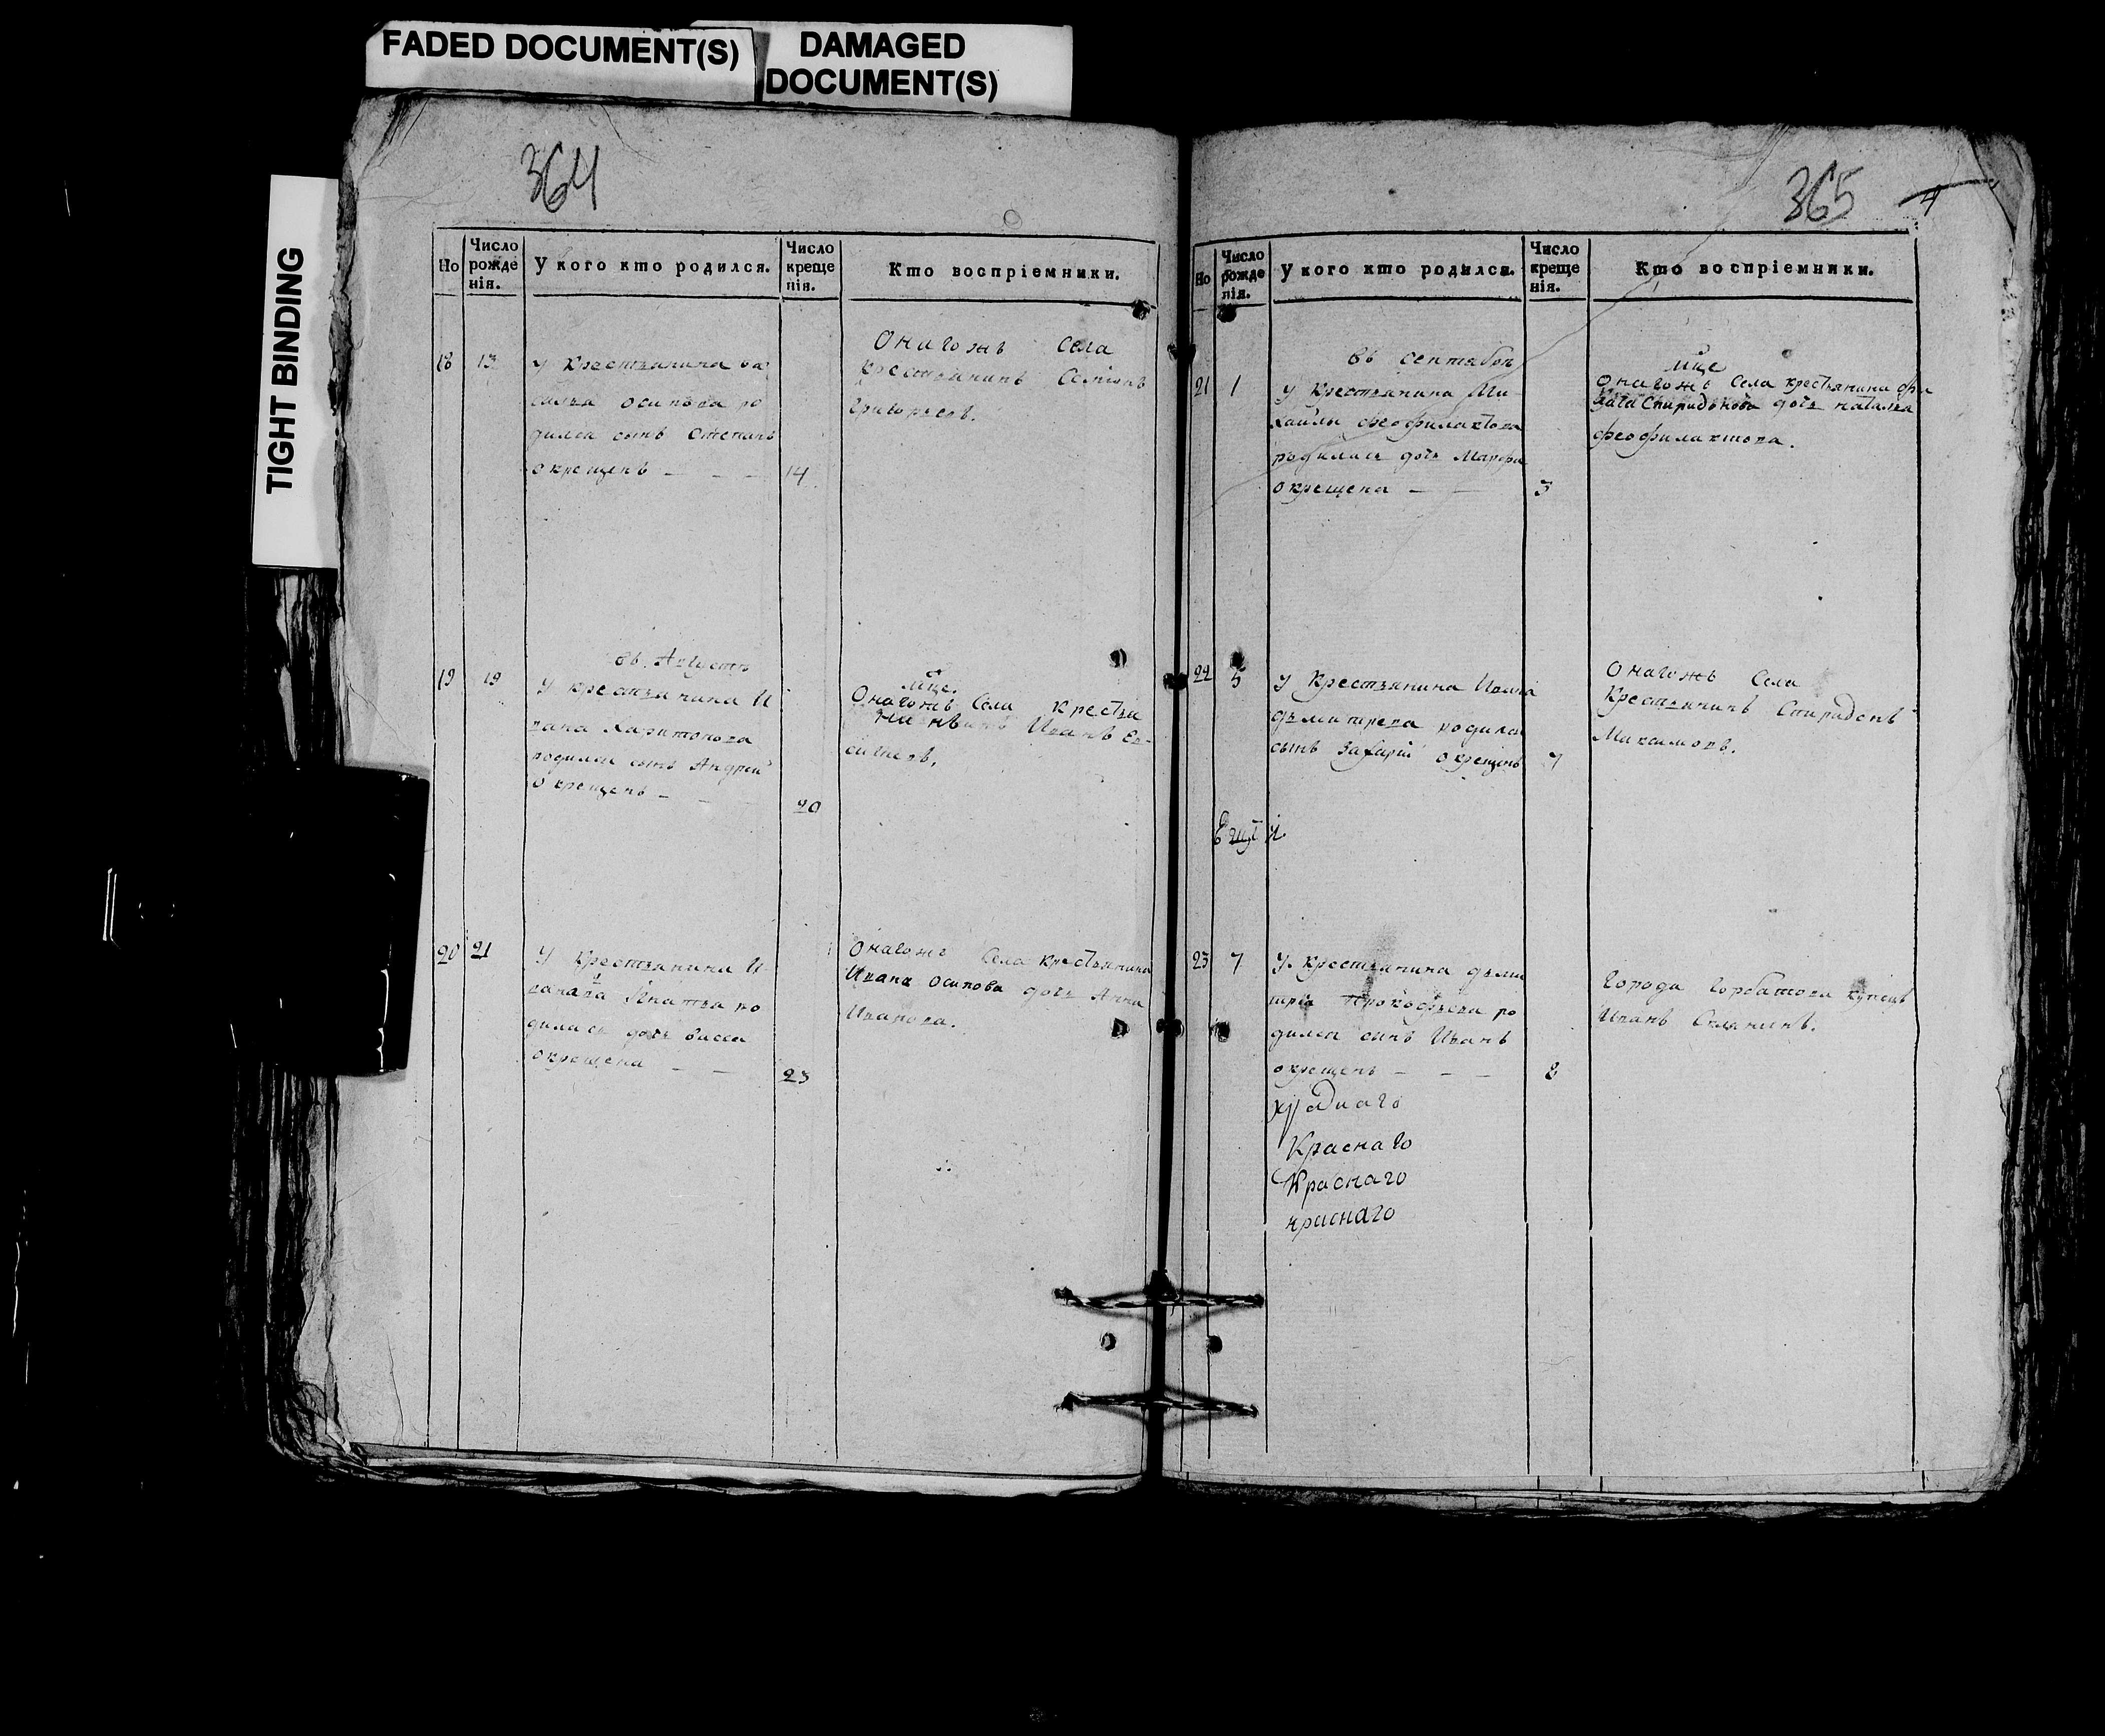 FADED DOCUMENT(S)
DAMAGED
DOCUMENT(S)
TIGHT BINDING
364
Но
Число рожде нія.
У кого кто родился.
Число креще нія.
Кто воспріемники.
18
13
у Крестьянина ва
силья осипова ро
дился сынъ Степанъ
окрещенъ – – –
14
Онагожъ Села
Крестьянинъ Семіонъ
Григорьевъ.
въ Августѣ
мце.
19
19
у крестьянина И
вана Харитонова
родился сынъ Андрей
окрещенъ – –
20
Онагожъ Села Крестья
нинъ Иванъ Ев-
20
21
У Крестьянина И-
вана Игнатьа ро
дилась дочь
окрещена – –
23
Онагожъ Села крестьянина
Ивана осипова дочь Анна
Иванова.
365
4
Но
Число рожде нія.
У кого кто родился.
Число креще нія.
Кто воспріемники.
въ сентябрѣ
мце
21
1
у Крестьянина Ми
хайлы феофилактова
родилась дочь Марфа
окрещена – –
3
Онагожъ Села крестьянина
Спиридонова дочь наталья
феофилактова.
22
5
у Крестьянина Ивана
дьмитрева родился
сынъ Захарій окрещенъ
7
Онагожъ Села
Крестьянинъ Спиридонъ
Максимовъ.
23
7
У крестьянина дьми
трія Прокофьева ро
дился сынъ Иванъ
окрещенъ – – –
8
Города Горбатова купецъ
Иванъ
Краснаго
Краснаго
краснаго